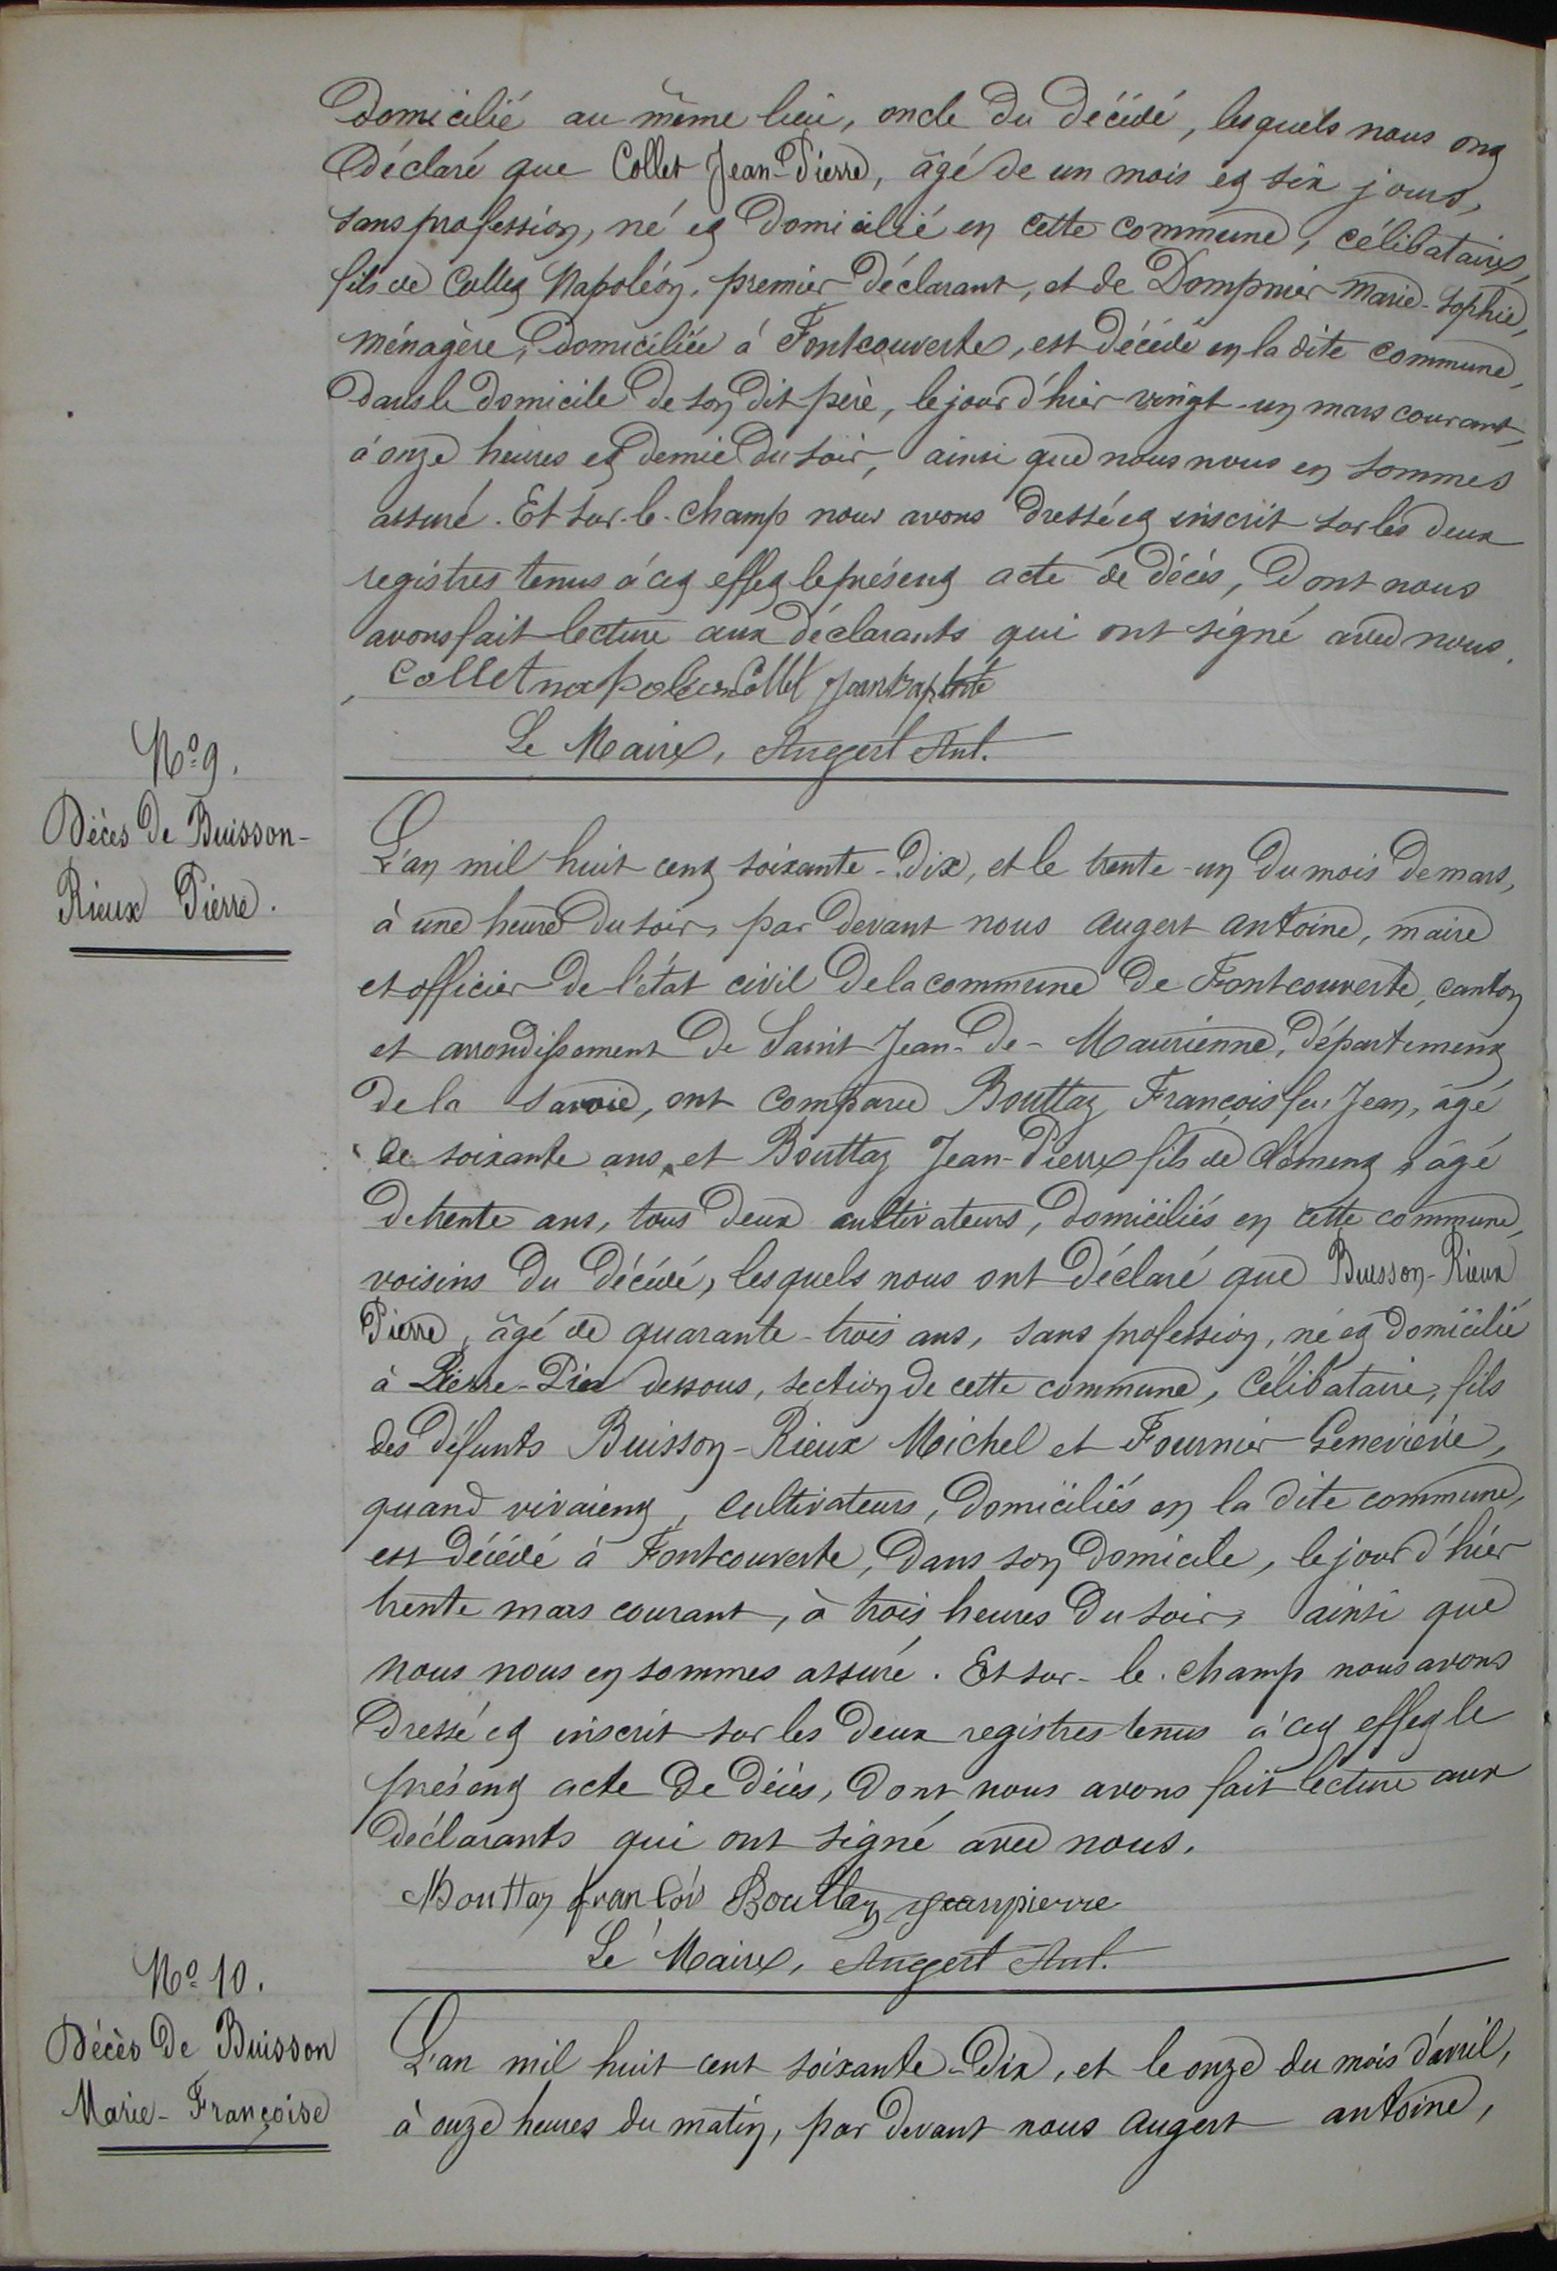 Domicilié au même lieu, oncle du décédé, lesquels nous ont
Déclaré que Collet Jean-Pierre, âgé de un mois et six jours,
sans profession, né et domicilié en cette commune, célibataire,
fils de Collet Napoléon, premier déclarant, et de Dompnier Marie-Sophie,
ménagère, domiciliée à Fontcouverte, est décédé en la dite commune,
dans le domicile de son dit père, le jour d'hier vingt-un mars courant,
à onze heures et demie du soir, ainsi que nous nous en sommes
assuré. Et sur-le-champ nous avons dressé et inscrit sur les deux
registres tenus à cet effet le présent acte de décès, dont nous
avons fait lecture aux déclarants qui ont signé avec nous.
Collet napoleon Collet Jean Baptiste
Le Maire, Augert Ant.
N° 9.
Décès de Buisson-
Rieux Pierre.
L'an mil huit cent soixante-dix, et le trente-un du mois de mars,
à une heure du soir, par devant nous Augert Antoine, maire
et officier de l'état civil de la commune de Fontcouverte, canton
et arrondissement de Saint Jean-de-Maurienne, département
de la Savoie, ont comparu Bouttaz François feu Jean, âgé
de soixante ans, et Bouttaz Jean-Pierre fils de Clément, âgé
de trente ans, tous deux cultivateurs, domiciliés en cette commune,
voisins du décédé, lesquels nous ont déclaré que Buisson-Rieux
Pierre, âgé de quarante-trois ans, sans profession, né et domicilié
à Pierre-Pin dessous, section de cette commune, célibataire, fils
des défunts Buisson-Rieux Michel et Fournier Geneviève,
quand vivaient, cultivateurs, domiciliés en la dite commune,
est décédé à Fontcouverte, dans son domicile, le jour d'hier
trente mars courant, à trois heures du soir, ainsi que
nous nous en sommes assuré. Et sur-le-champ nous avons
dressé et inscrit sur les deux registres tenus à cet effet le
présent acte de décès, dont nous avons fait lecture aux
déclarants qui ont signé avec nous.
Bouttaz françois Bouttaz jean pierre
Le Maire, Augert Ant.
N° 10.
Décès de Buisson
Marie-Françoise
L'an mil huit cent soixante-dix, et le onze du mois d'avril,
à onze heures du matin, par devant nous Augert antoine,